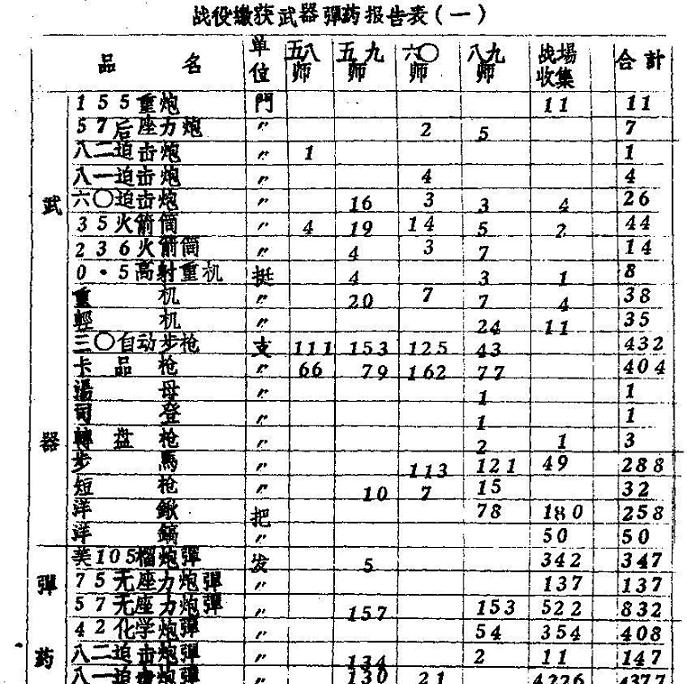 战役缴获武器彈药报告表(一)
品 名 单位 五八师 五九师 六〇师 八九师 战場收集 合計
武器
155重炮 門 11 11
57后座力炮 〃 2 5 7
八二迫击炮 〃 1 1
八一迫击炮 〃 4 4
六〇迫击炮 〃 16 3 3 4 26
35火箭筒 〃 4 19 14 5 2 44
236火箭筒 〃 4 3 7 14
0·5高射重机 挺 4 3 1 8
重机 〃 20 7 7 4 38
輕机 〃 24 11 35
三〇自动步枪 支 111 153 125 43 432
卡品枪 〃 66 79 162 77 404
湯母 〃 1 1
司登 〃 1 1
轉盘枪 〃 2 1 3
步馬 〃 113 121 49 288
短枪 〃 10 7 15 32
洋鍬 把 78 180 258
洋鎬 50 50
彈药
美105榴炮彈 发 5 342 347
75无座力炮彈 〃 137 137
57无座力炮彈 〃 157 153 522 832
42化学炮彈 〃 54 354 408
八二迫击炮彈 〃 134 2 11 147
八一迫击炮彈 〃 130 21 4226 4377